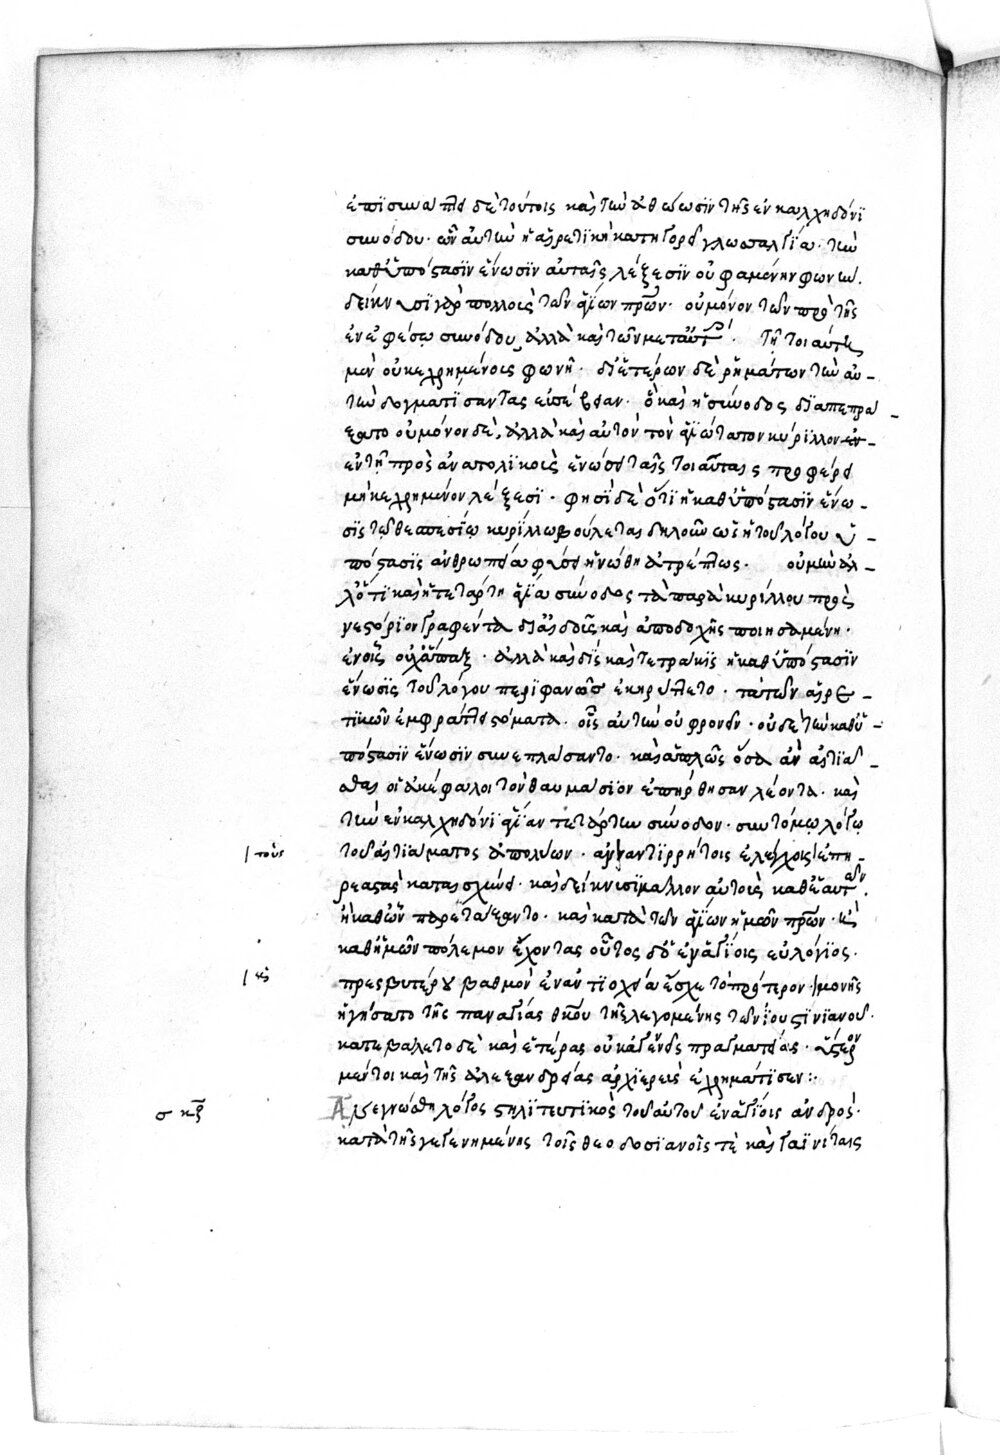 ἐπισυνάπτει δὲ τούτοις καὶ τὴν ἀθώωσιν τῆς ἐν καλχηδόνι
συνόδου· ὧν αὐτὴν ἡ αἱρετικὴ κατηγορεῖ γλωσσαλγία· τὴν
καθ' ὑπόστασιν ἕνωσιν αὐταῖς λέξεσιν οὐ φαμένην φωνῶν.
δείκνυσι γὰρ πολλοὺς τῶν ἁγίων πρων· οὐ μόνον τῶν πρὸ τῆς
ἐν ἐφέσω συνόδου, ἀλλὰ καὶ τῶν μετ' αὐτήν· τῇ τοιαύτῃ
μὲν οὐ κεχρημένους φωνῇ· δι' ἑτέρων δὲ ῥημάτων τὴν αὐ-
τὴν δογματίσαντας εὐσέβειαν· ὃ καὶ ἡ σύνοδος διαπεπρα-
κτο οὐ μόνον δὲ, ἀλλὰ καὶ αὐτὸν τὸν ἁγιώτατον κύριλλον ἐν
ἐν τῇ πρὸς ἀνατολικοὺς ἑνώσει ταῖς τοιαύταις προφέρει
μὴ κεχρημένον λέξεσι· φησὶ δὲ ὅτι ἡ καθ' ὑπόστασιν ἕνω-
σις τῷ θεσπεσίῳ κυρίλλω βούλεται δηλοῦν ὡς ἡ τοῦ λόγου ὑ-
πόστασις ἀνθρωπεία φύσει ἡνώθη ἀτρέπτως· οὐ μὴν ἀλ-
λ' ὅτι καὶ ἡ τετάρτη ἁγία σύνοδος τὰ παρὰ κυρίλλου πρὸς
νεστόριον γραφέντα διὰ σπουδῆς καὶ ἀποδοχῆς ποιησαμένη·
ἐν οἷς οὐχ ἅπαξ· ἀλλὰ καὶ δὶς καὶ τετράκις ἡ καθ' ὑπόστασιν
ἕνωσις τοῦ λόγου περιφανῶς ἐκηρύττετο· τὰ τῶν αἱρε-
τικῶν ἐμφράττει στόματα· οἷς αὐτὴν οὐ φρονεῖν· οὐδὲ τὴν καθ' ὑ-
πόστασιν ἕνωσιν συνεπλάσαντο· καὶ ἁπλῶς ὅσα ἂν αἰτιά-
σθαι οἱ ἀκέφαλοι τὸν θαυμάσιον ἐπήρθησαν λέοντα· καὶ
τὴν ἐν καλχηδόνι ἁγίαν τετάρτην σύνοδον· συντόμω λόγω
τοῦ αἰτιάματος ἀπολύων· ἀναντιρρήτοις ἐλέγχοις ἐπη-
ρεάσας καταισχύνει· καὶ δείκνυσι μᾶλλον αὐτοὺς καθ' ἑαυτῶν·
ἢ καθ' ὧν παρετάξαντο· καὶ κατὰ τῶν ἁγίων ἡμῶν πρων· καὶ
καθ' ἡμῶν πόλεμον ἔχοντας οὗτος ὁ ἐν ἁγίοις εὐλόγιος·
πρεσβυτέρου βαθμὸν ἐν ἀντιοχεία ἔσχε τὸ πρότερον· μονῆς
ἡγήσατο τῆς παναγίας θκου τῆς λεγομένης τῶν ἰουστινιανοῦ·
κατεβάλετο δὲ καὶ ἑτέρας οὐκ ἀγεννεῖς πραγματείας· ὕστερον
μέντοι καὶ τῆς ἀλεξανδρείας ἀρχιερεὺς ἐχρημάτισεν:·
Ἀνεγνώσθη λόγος στηλιτευτικὸς τοῦ αὐτοῦ ἐν ἁγίοις ἀνδρὸς·
κατὰ τῆς γεγενημένης τοῖς θεοδοσιανοῖς τὲ καὶ γαϊνίταις
τοὺς
καὶ
σκζ